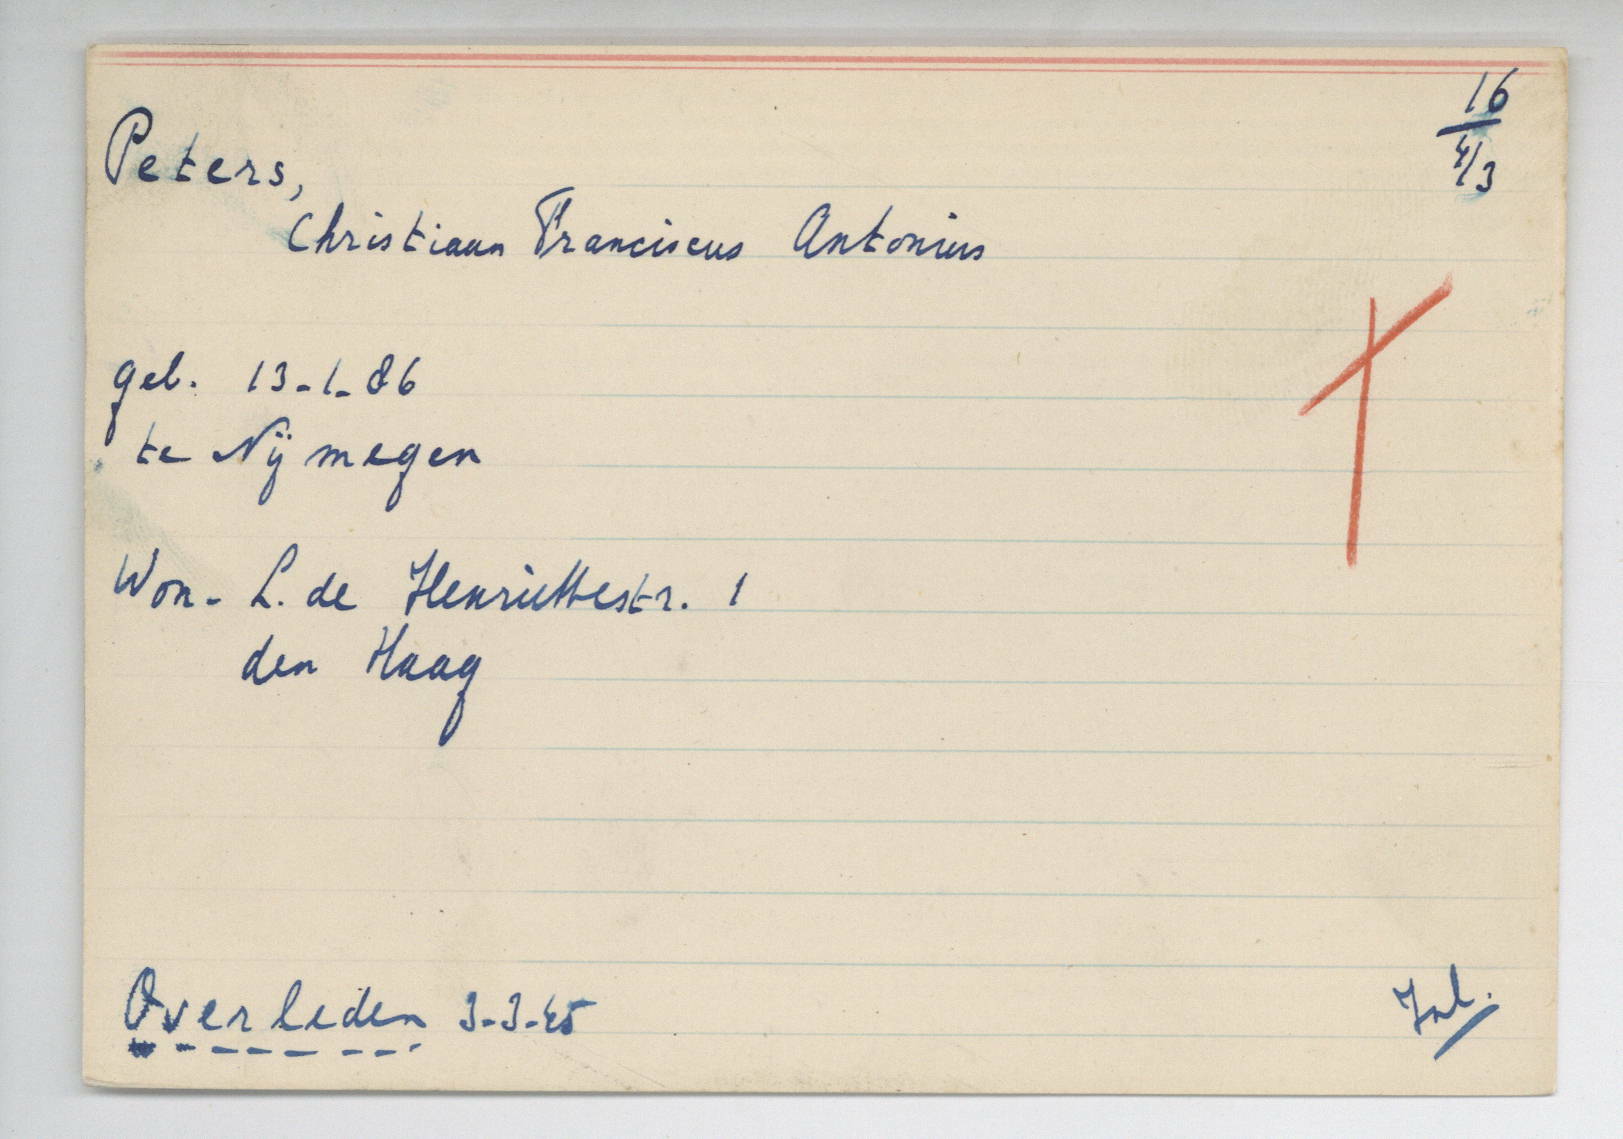 16
4/3
Peters,
Christiaan Franciscus Antonius
geb. 13-1-86
te Nijmegen
Won. L. de Henriettestr. 1
den Haag
Overleden 3-3-45
Inl.